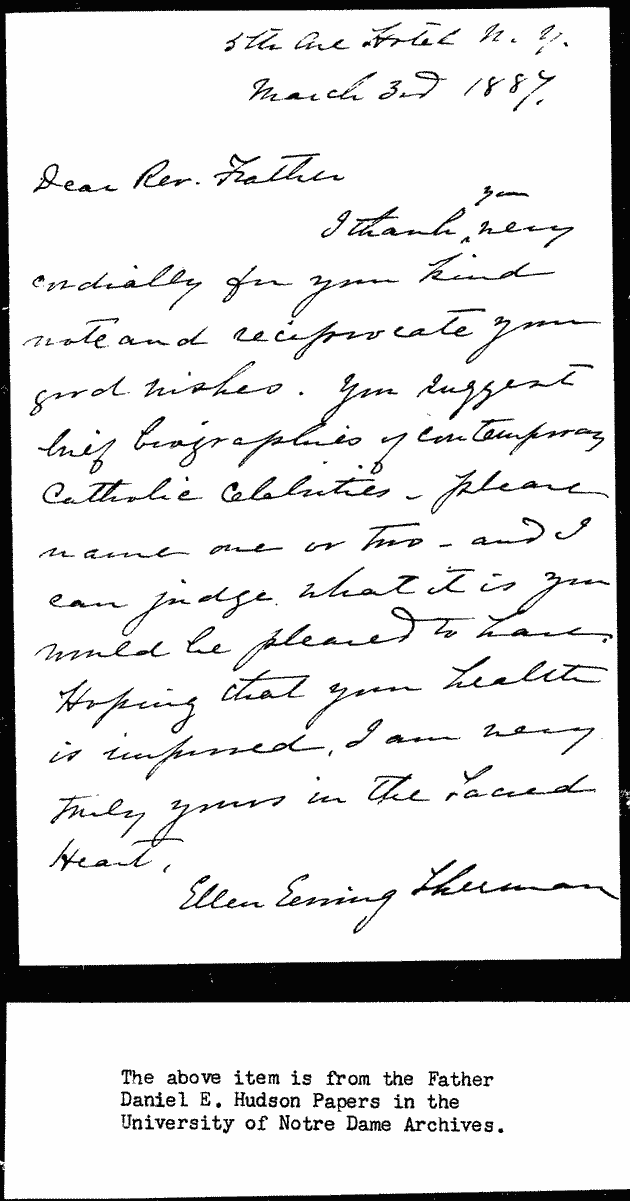 5th Ave Hotel N. Y.
March 3rd 1887.
Dear Rev. Father
you
I thank ^ very
cordially for your kind
note and reciprocate your
good wishes. You suggest
brief biographies of contemporary
Catholic celebrities - please
name one or two - and I
can judge what it is you
would be pleased to have.
Hoping that your health
is improved, I am very
truly yours in the Sacred
Heart,
Ellen Ewing Sherman
The above item is from the Father
Daniel E. Hudson Papers in the
University of Notre Dame Archives.